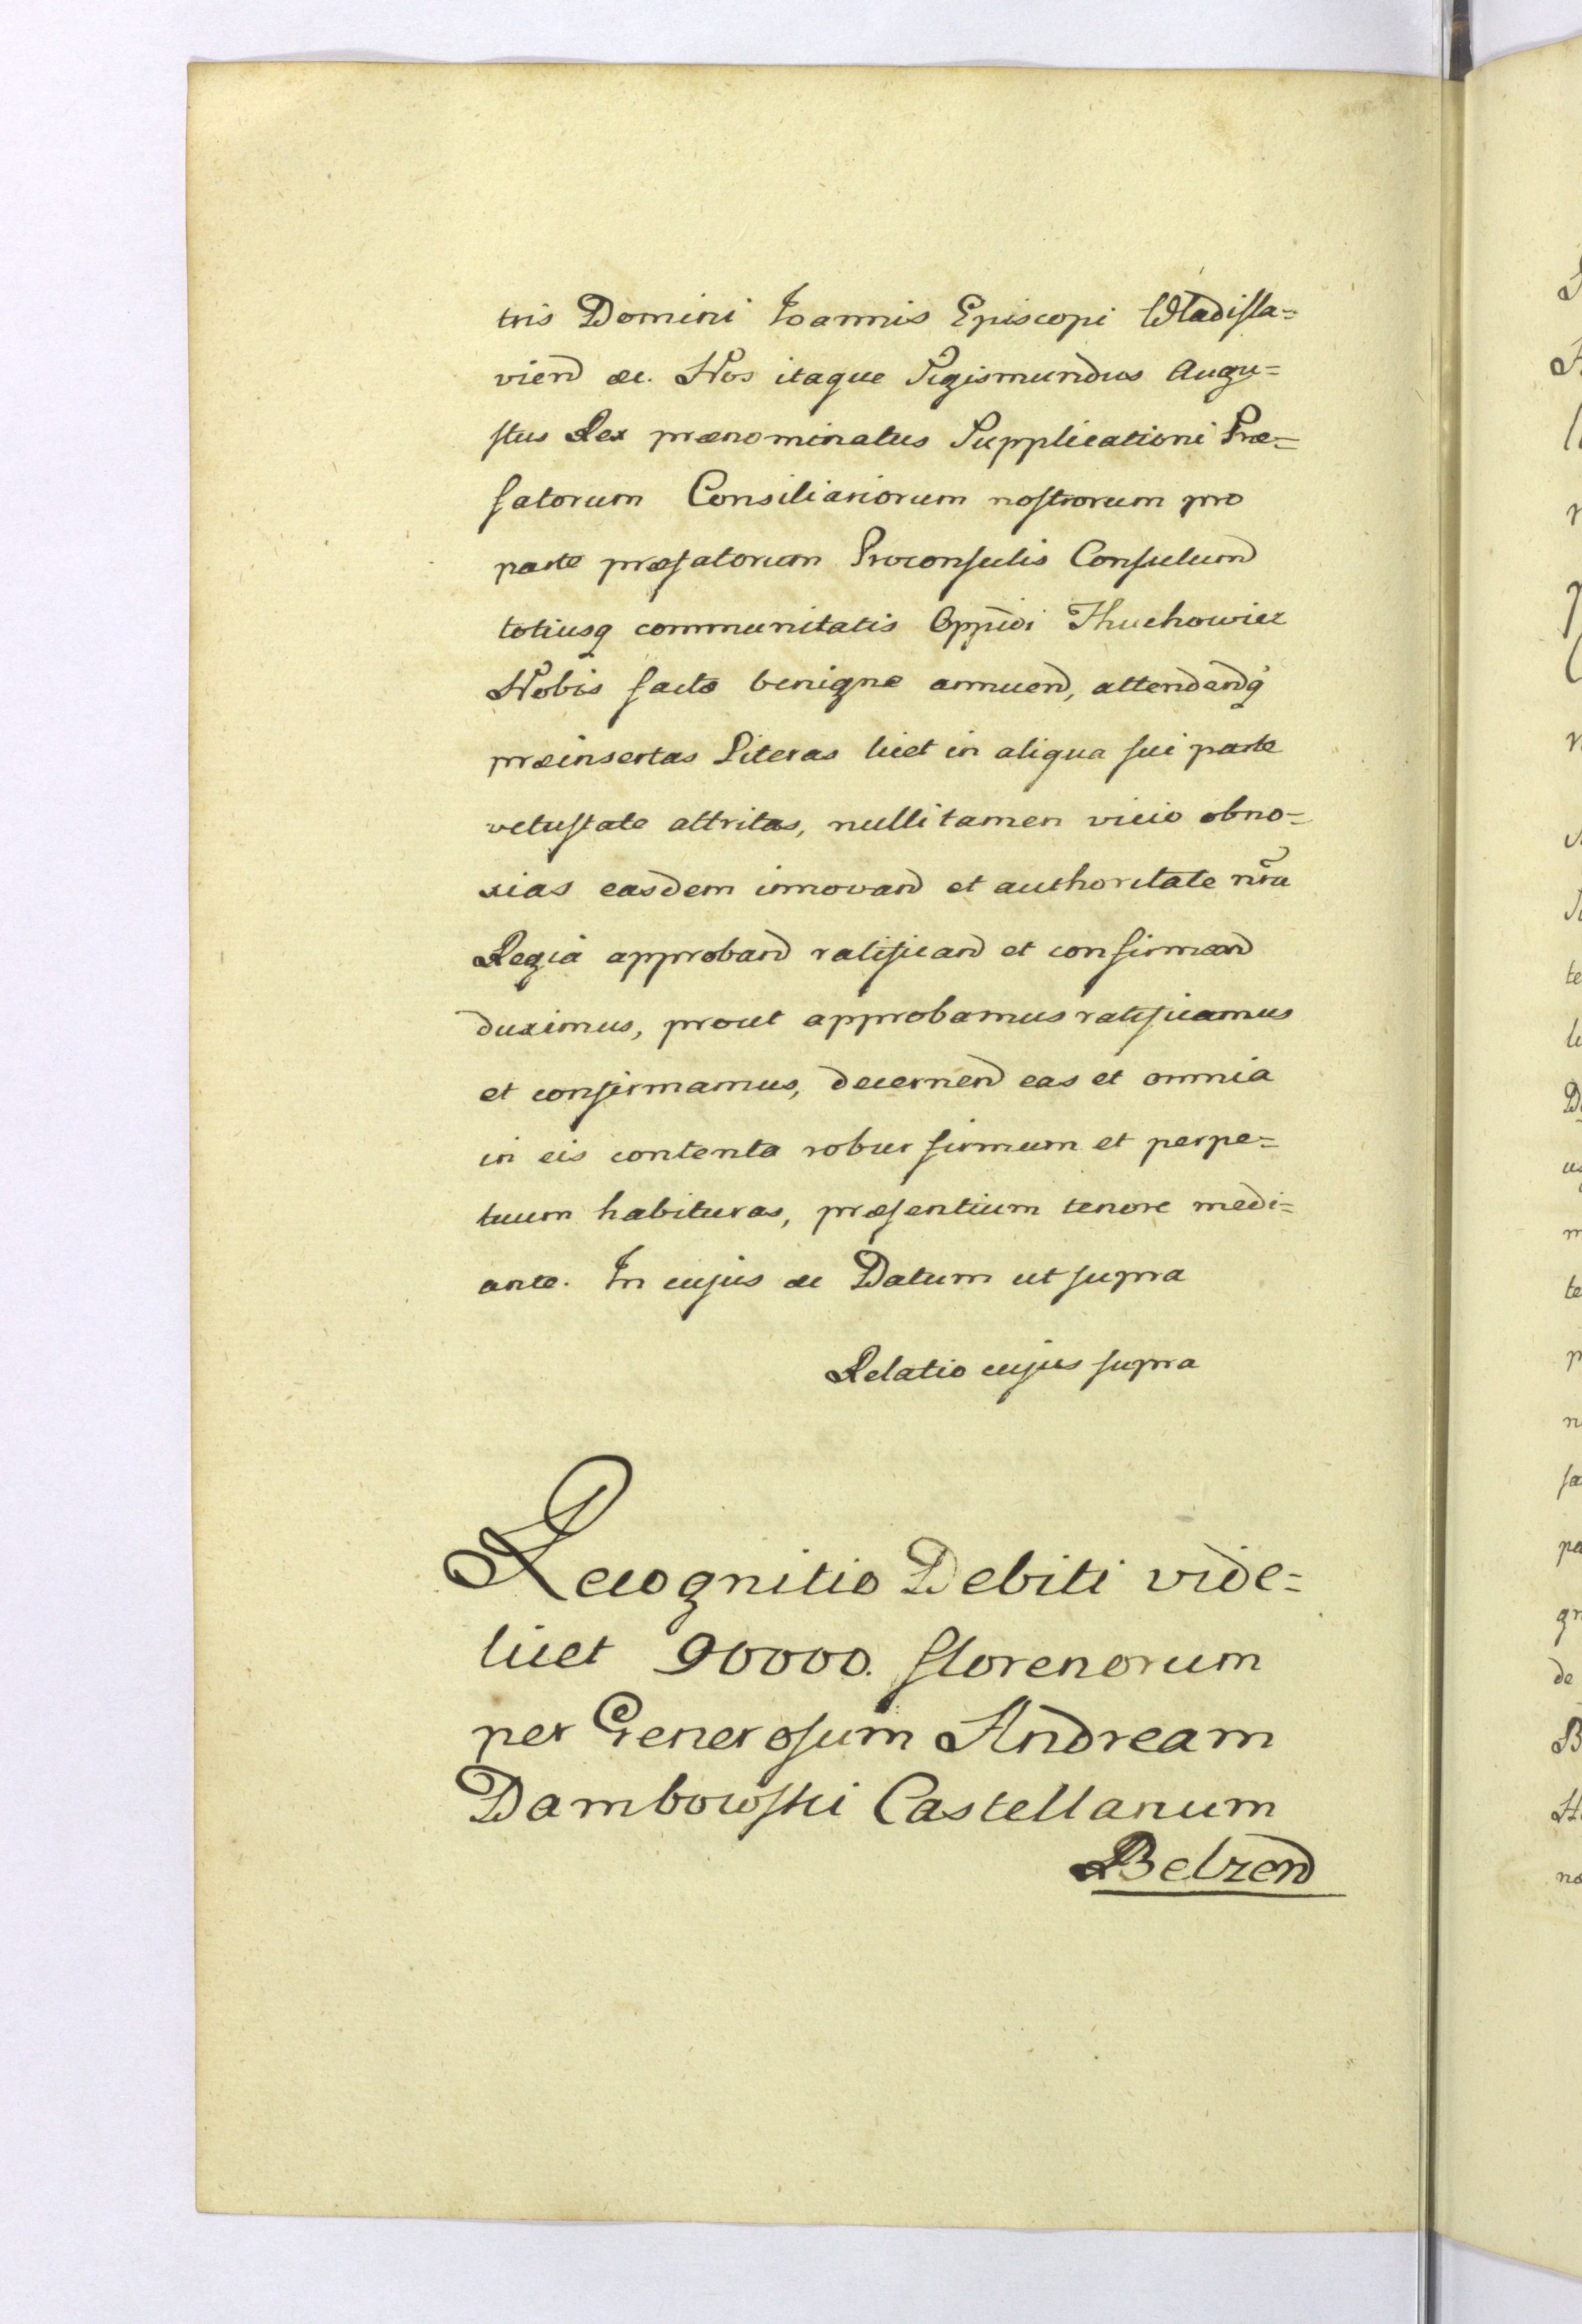 tris Domini Ioannis Episcopi Wladisla=
vien̄ &c. Nos itaque Sigismundus Augu=
stus Rex prænominatus Supplicationi Præ=
fatorum Consiliariorum nostrorum pro
parte præfatorum Proconsulis Consulum
totiusq communitatis Oppidi Thuchowicz
Nobis facto benigne annuen̄, attendendq
præinsertas Literas licet in aliqua sui parte
vetustate attritas, nulli tamen vicio obno=
xias easdem innovand et authoritate nr̄a
Regia approband ratificand et confirmand
duximus, prout approbamus ratificamus
et confirmamus, decernend eas et omnia
in eis contenta robur firmum et perpe=
tuum habituras, præsentium tenore medi=
ante. In cujus &c Datum ut supra
Relatio cujus supra
Recognitio Debiti vide=
licet 90000. florenorum
per Generosum Andream
Dambowski Castellanum
Belzen̄